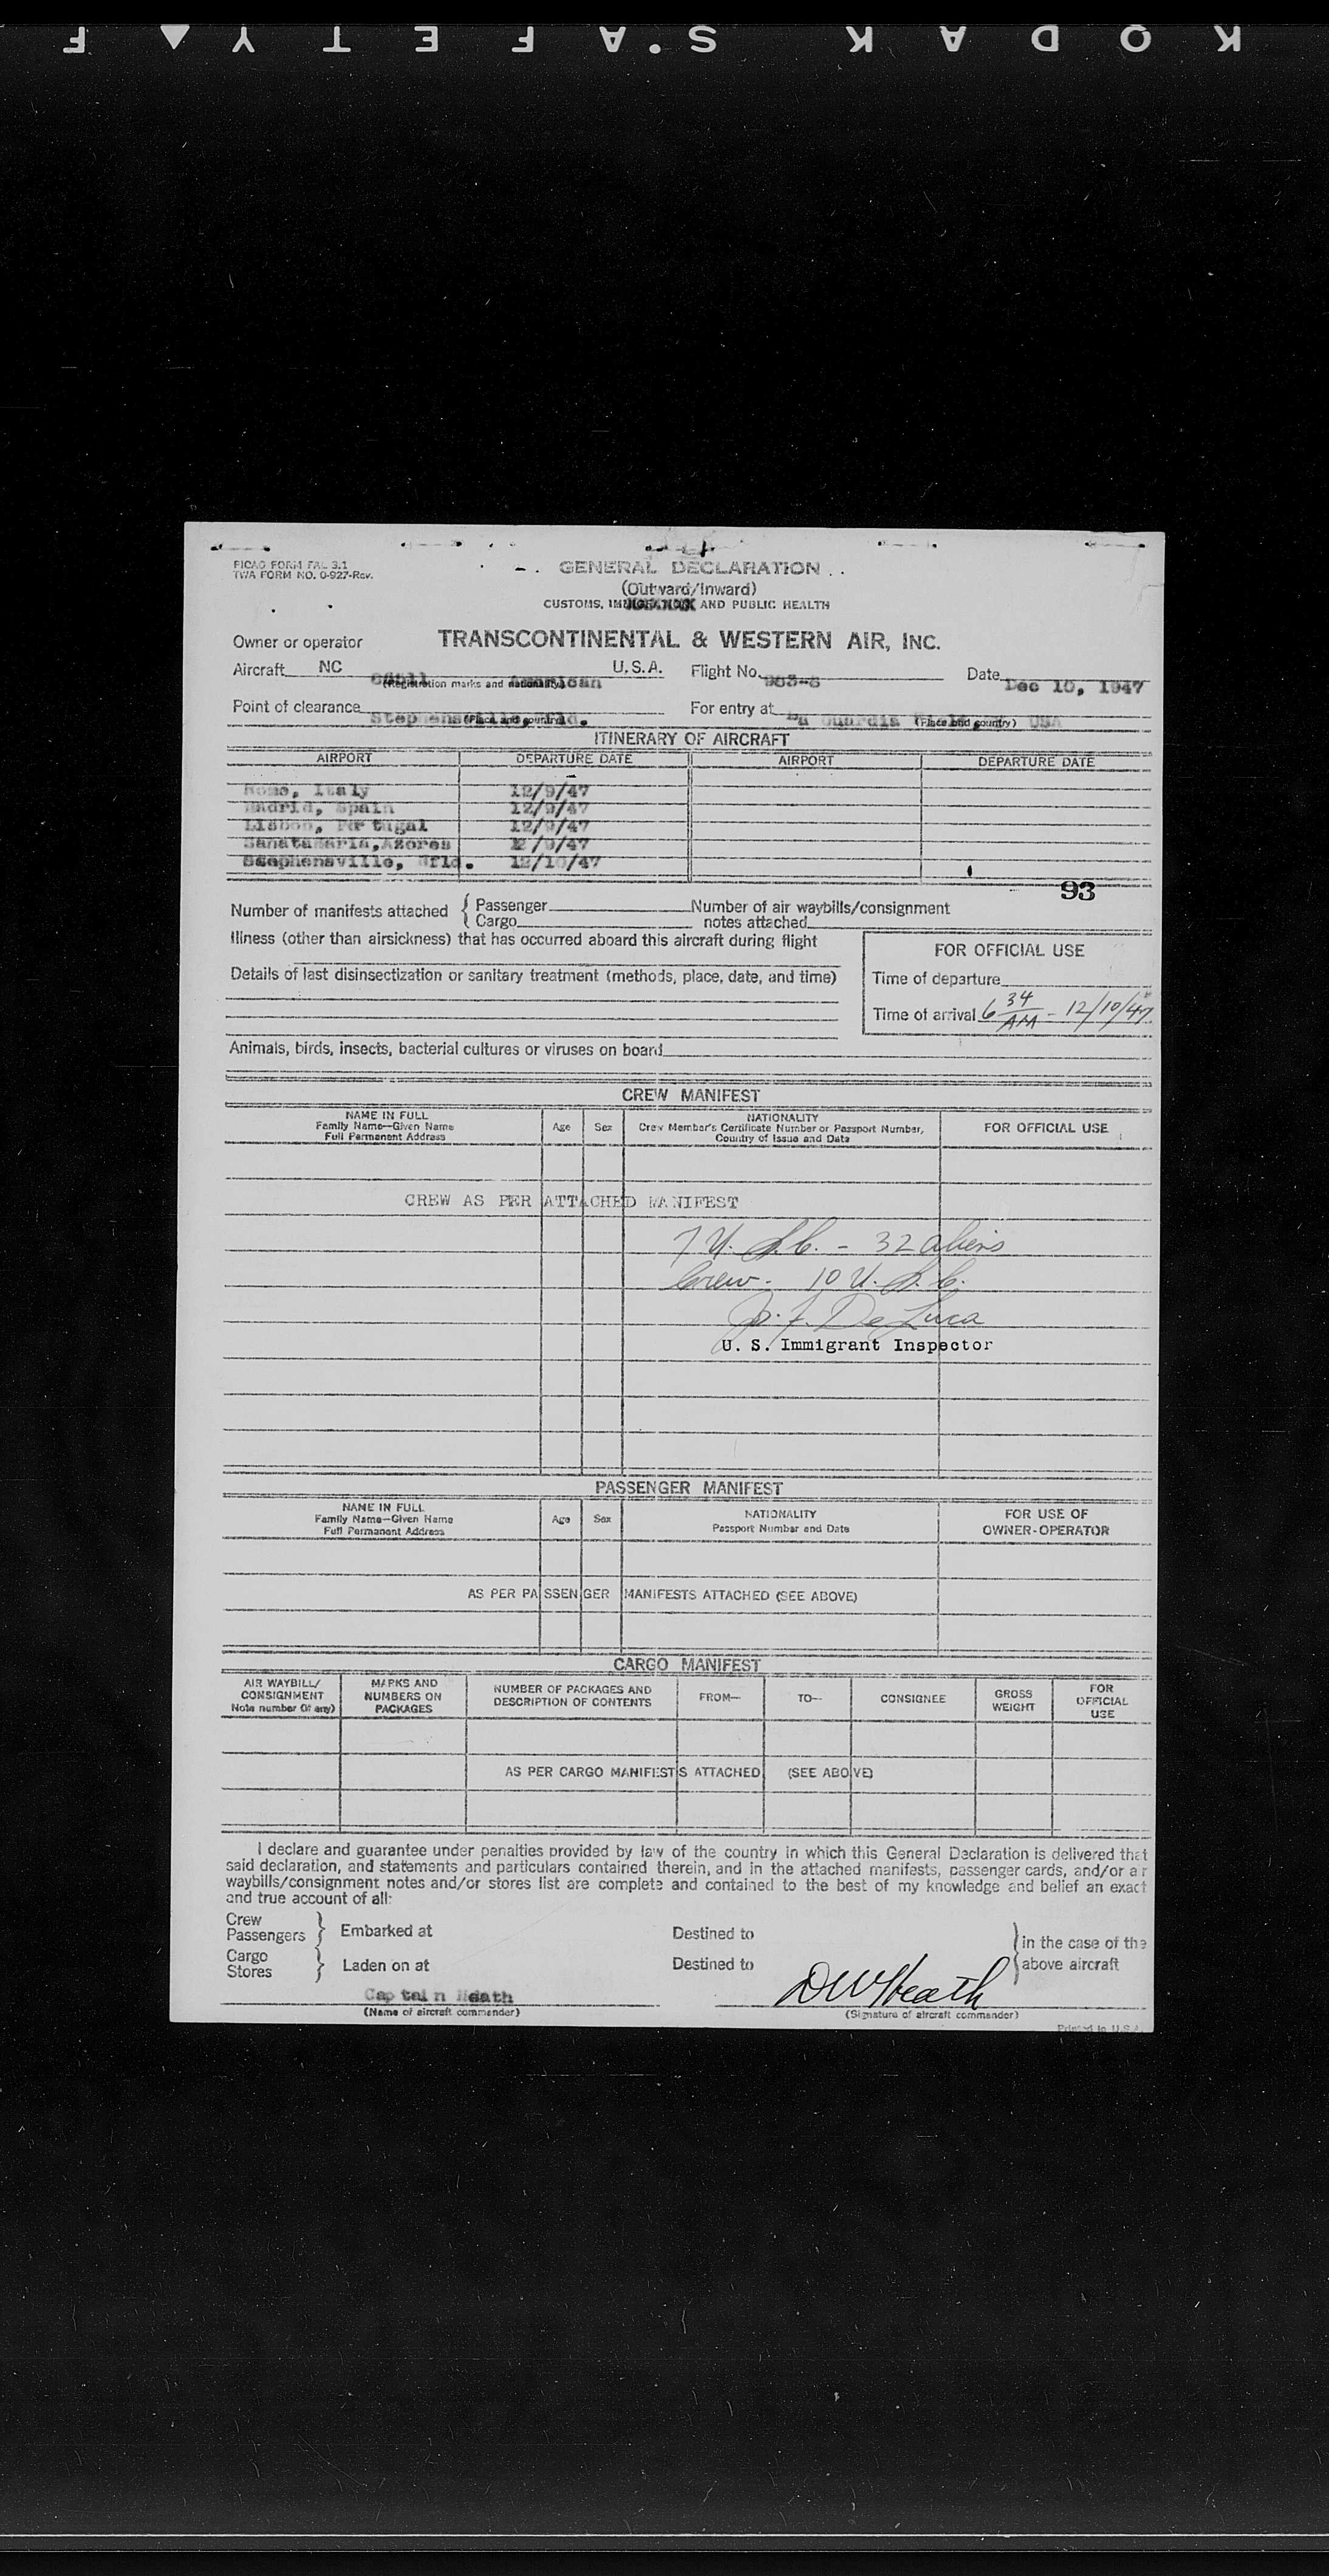 KODAK SAFETY
PICAO FORM FAL 3.1
TWA FORM NO. 0-927-Rev.
GENERAL DECLARATION
(Outward/Inward)
CUSTOMS, AND PUBLIC HEALTH
Owner or operator TRANSCONTINENTAL & WESTERN AIR, INC.
Aircraft NC U.S.A. Flight No. Date Dec 10, 1947
American
(Registration marks and nationality)
Point of clearance For entry at La Guardia USA
(Place and country) (Place and country)
ITINERARY OF AIRCRAFT
AIRPORT DEPARTURE DATE AIRPORT DEPARTURE DATE
Rome, Italy 12/9/47
Madrid, Spain 12/9/47
Lisbon, Portugal 12/9/47
SanataMaria,Azores 12/9/47
Stephensville, Nfld. 12/10/47
93
Number of manifests attached { Passenger Number of air waybills/consignment
{ Cargo notes attached
Illness (other than airsickness) that has occurred aboard this aircraft during flight
FOR OFFICIAL USE
Details of last disinsectization or sanitary treatment (methods, place, date, and time)
Time of departure
Time of arrival 6 34 AM - 12/10/47
Animals, birds, insects, bacterial cultures or viruses on board
CREW MANIFEST
NAME IN FULL
Family Name—Given Name
Full Permanent Address
Age Sex
NATIONALITY
Crew Member's Certificate Number or Passport Number,
Country of Issue and Date
FOR OFFICIAL USE
CREW AS PER ATTACHED MANIFEST
7 U.S.C. - 32 aliens
Crew - 10 U.S.C.
De Luca
U. S. Immigrant Inspector
PASSENGER MANIFEST
NAME IN FULL
Family Name—Given Name
Full Permanent Address
Age Sex
NATIONALITY
Passport Number and Date
FOR USE OF
OWNER-OPERATOR
AS PER PASSENGER MANIFESTS ATTACHED (SEE ABOVE)
CARGO MANIFEST
AIR WAYBILL/
CONSIGNMENT
Note number (if any)
MARKS AND
NUMBERS ON
PACKAGES
NUMBER OF PACKAGES AND
DESCRIPTION OF CONTENTS
FROM—
TO—
CONSIGNEE
GROSS
WEIGHT
FOR
OFFICIAL
USE
AS PER CARGO MANIFESTS ATTACHED (SEE ABOVE)
I declare and guarantee under penalties provided by law of the country in which this General Declaration is delivered that
said declaration, and statements and particulars contained therein, and in the attached manifests, passenger cards, and/or air
waybills/consignment notes and/or stores list are complete and contained to the best of my knowledge and belief an exact
and true account of all:
Crew
Passengers } Embarked at Destined to } in the case of the
Cargo
Stores } Laden on at Destined to above aircraft
Captain Heath DW Heath
(Name of aircraft commander) (Signature of aircraft commander)
Printed in U.S.A.